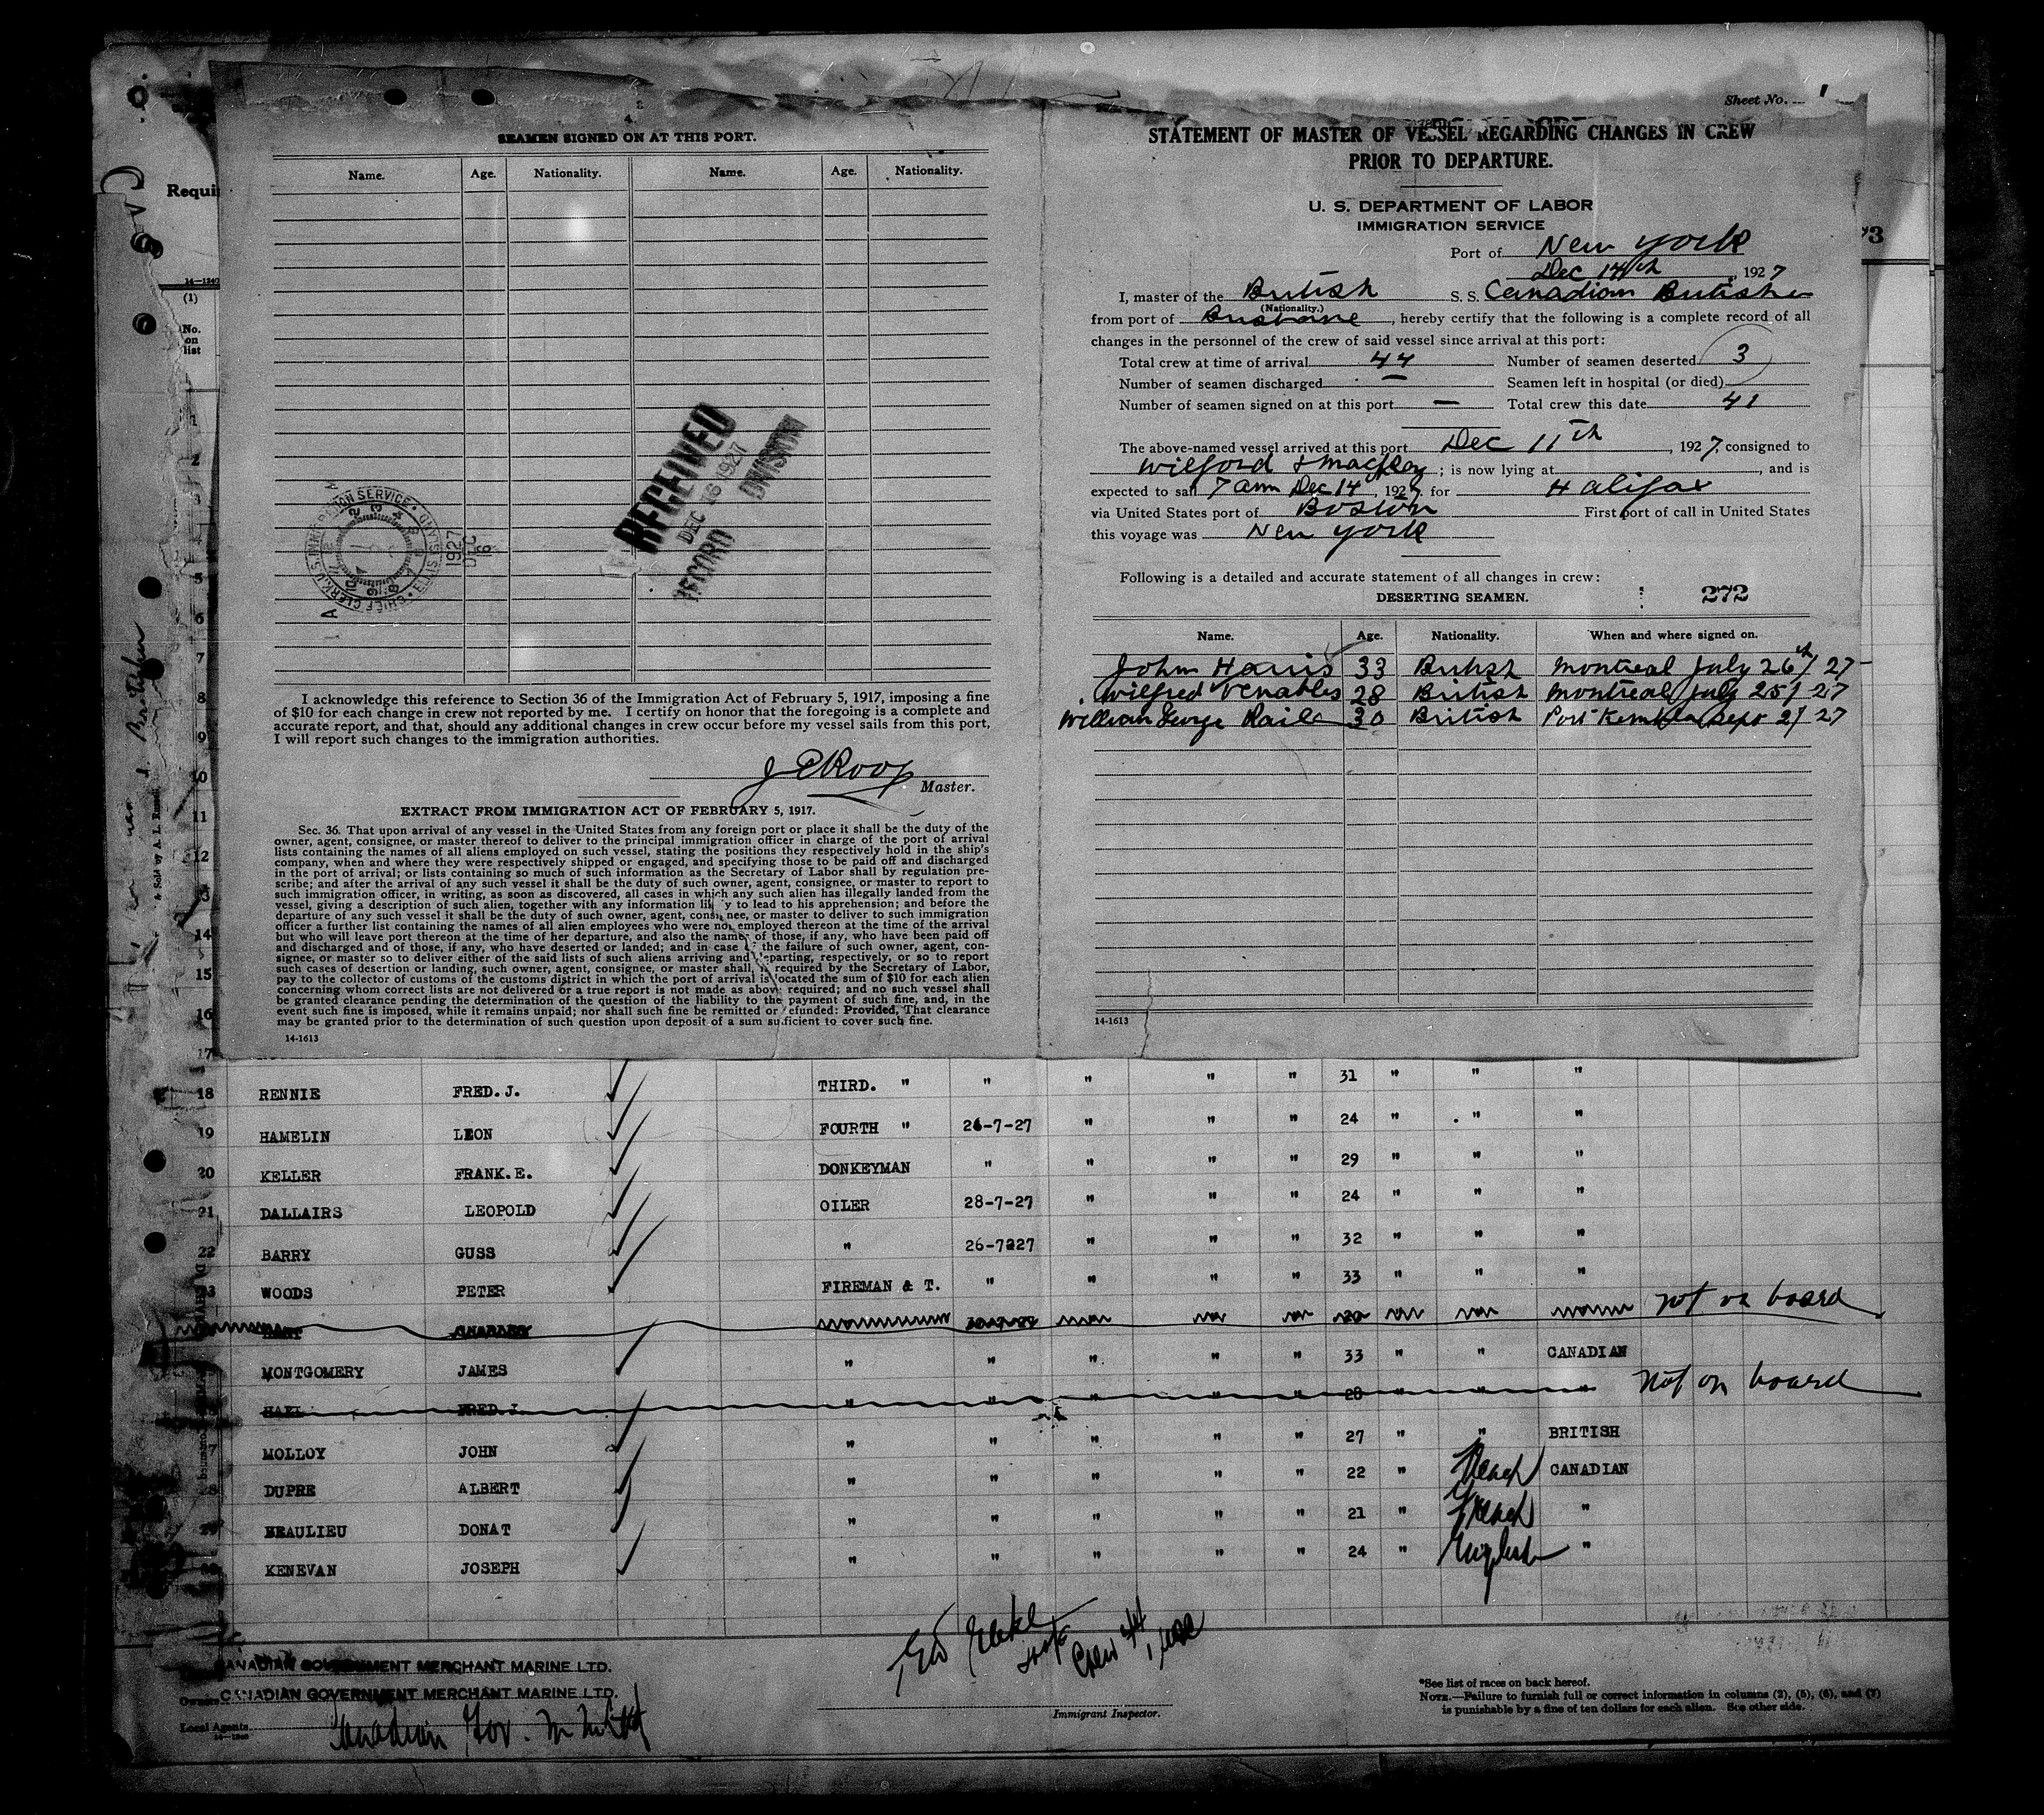 Sheet No. 1
SEAMEN SIGNED ON AT THIS PORT.
Name. Age. Nationality. Name. Age. Nationality.
Requi
14—1240
(1)
No.
on
list
1
2
3
4
5
6
7
8
9
10
11
12
13
14
15
16
17
RECEIVED
DEC 16 1927
RECORD DIVISION
CHIEF CLERK, U.S. IMMIGRATION SERVICE
1927
DEC
I acknowledge this reference to Section 36 of the Immigration Act of February 5, 1917, imposing a fine
of $10 for each change in crew not reported by me. I certify on honor that the foregoing is a complete and
accurate report, and that, should any additional changes in crew occur before my vessel sails from this port,
I will report such changes to the immigration authorities.
J E Roop
Master.
EXTRACT FROM IMMIGRATION ACT OF FEBRUARY 5, 1917.
Sec. 36. That upon arrival of any vessel in the United States from any foreign port or place it shall be the duty of the
owner, agent, consignee, or master thereof to deliver to the principal immigration officer in charge of the port of arrival
lists containing the names of all aliens employed on such vessel, stating the positions they respectively hold in the ship's
company, when and where they were respectively shipped or engaged, and specifying those to be paid off and discharged
in the port of arrival; or lists containing so much of such information as the Secretary of Labor shall by regulation pre-
scribe; and after the arrival of any such vessel it shall be the duty of such owner, agent, consignee, or master to report to
such immigration officer, in writing, as soon as discovered, all cases in which any such alien has illegally landed from the
vessel, giving a description of such alien, together with any information lik y to lead to his apprehension; and before the
departure of any such vessel it shall be the duty of such owner, agent, consi nee, or master to deliver to such immigration
officer a further list containing the names of all alien employees who were not employed thereon at the time of the arrival
but who will leave port thereon at the time of her departure, and also the names of those, if any, who have been paid off
and discharged and of those, if any, who have deserted or landed; and in case of the failure of such owner, agent, con-
signee, or master so to deliver either of the said lists of such aliens arriving and departing, respectively, or so to report
such cases of desertion or landing, such owner, agent, consignee, or master shall, if required by the Secretary of Labor,
pay to the collector of customs of the customs district in which the port of arrival is located the sum of $10 for each alien
concerning whom correct lists are not delivered or a true report is not made as above required; and no such vessel shall
be granted clearance pending the determination of the question of the liability to the payment of such fine, and, in the
event such fine is imposed, while it remains unpaid; nor shall such fine be remitted or refunded: Provided, That clearance
may be granted prior to the determination of such question upon deposit of a sum sufficient to cover such fine.
14-1613
STATEMENT OF MASTER OF VESSEL REGARDING CHANGES IN CREW
PRIOR TO DEPARTURE.
U. S. DEPARTMENT OF LABOR
IMMIGRATION SERVICE
Port of New York
Dec 14th, 1927
I, master of the British S. S. Canadian Britisher
(Nationality.)
from port of Brisbane, hereby certify that the following is a complete record of all
changes in the personnel of the crew of said vessel since arrival at this port:
Total crew at time of arrival 44 Number of seamen deserted 3
Number of seamen discharged — Seamen left in hospital (or died)
Number of seamen signed on at this port — Total crew this date 41
The above-named vessel arrived at this port Dec 11th, 1927, consigned to
; is now lying at , and is
expected to sail 7 am Dec 14, 1927, for Halifax
via United States port of Boston First port of call in United States
this voyage was New York
Following is a detailed and accurate statement of all changes in crew:
DESERTING SEAMEN. 272
Name. Age. Nationality. When and where signed on.
John Harris 33 British Montreal July 26th/27
Wilfred Venables 28 British Montreal July 25/27
William George 30 British Port Kembla Sept 2/27
14-1613
18 RENNIE FRED.J. THIRD. " " " " " 31 " " "
19 HAMELIN LEON FOURTH " 26-7-27 " " " 24 " " "
20 KELLER FRANK.E. DONKEYMAN " " " " 29 " " "
21 DALLAIRS LEOPOLD OILER 28-7-27 " " " 24 " " "
22 BARRY GUSS " 26-7227 " " " 32 " " "
WOODS PETER FIREMAN & T. " " " " 33 " " "
not on board
MONTGOMERY JAMES " " " " " 33 " " CANADIAN
FRED.J. " " " " " 28 " " " not on board
MOLLOY JOHN " " " " " 27 " " BRITISH
DUPRE ALBERT " " " " " 22 " French CANADIAN
BEAULIEU DONAT " " " " " 21 " French "
KENEVAN JOSEPH " " " " " 24 " English "
Crew 44
CANADIAN GOVERNMENT MERCHANT MARINE LTD.
Owners CANADIAN GOVERNMENT MERCHANT MARINE LTD.
Local Agents Canadian Gov.
14—1240
Immigrant Inspector.
*See list of races on back hereof.
NOTE.—Failure to furnish full or correct information in columns (2), (5), (6), and (7)
is punishable by a fine of ten dollars for each alien. See other side.